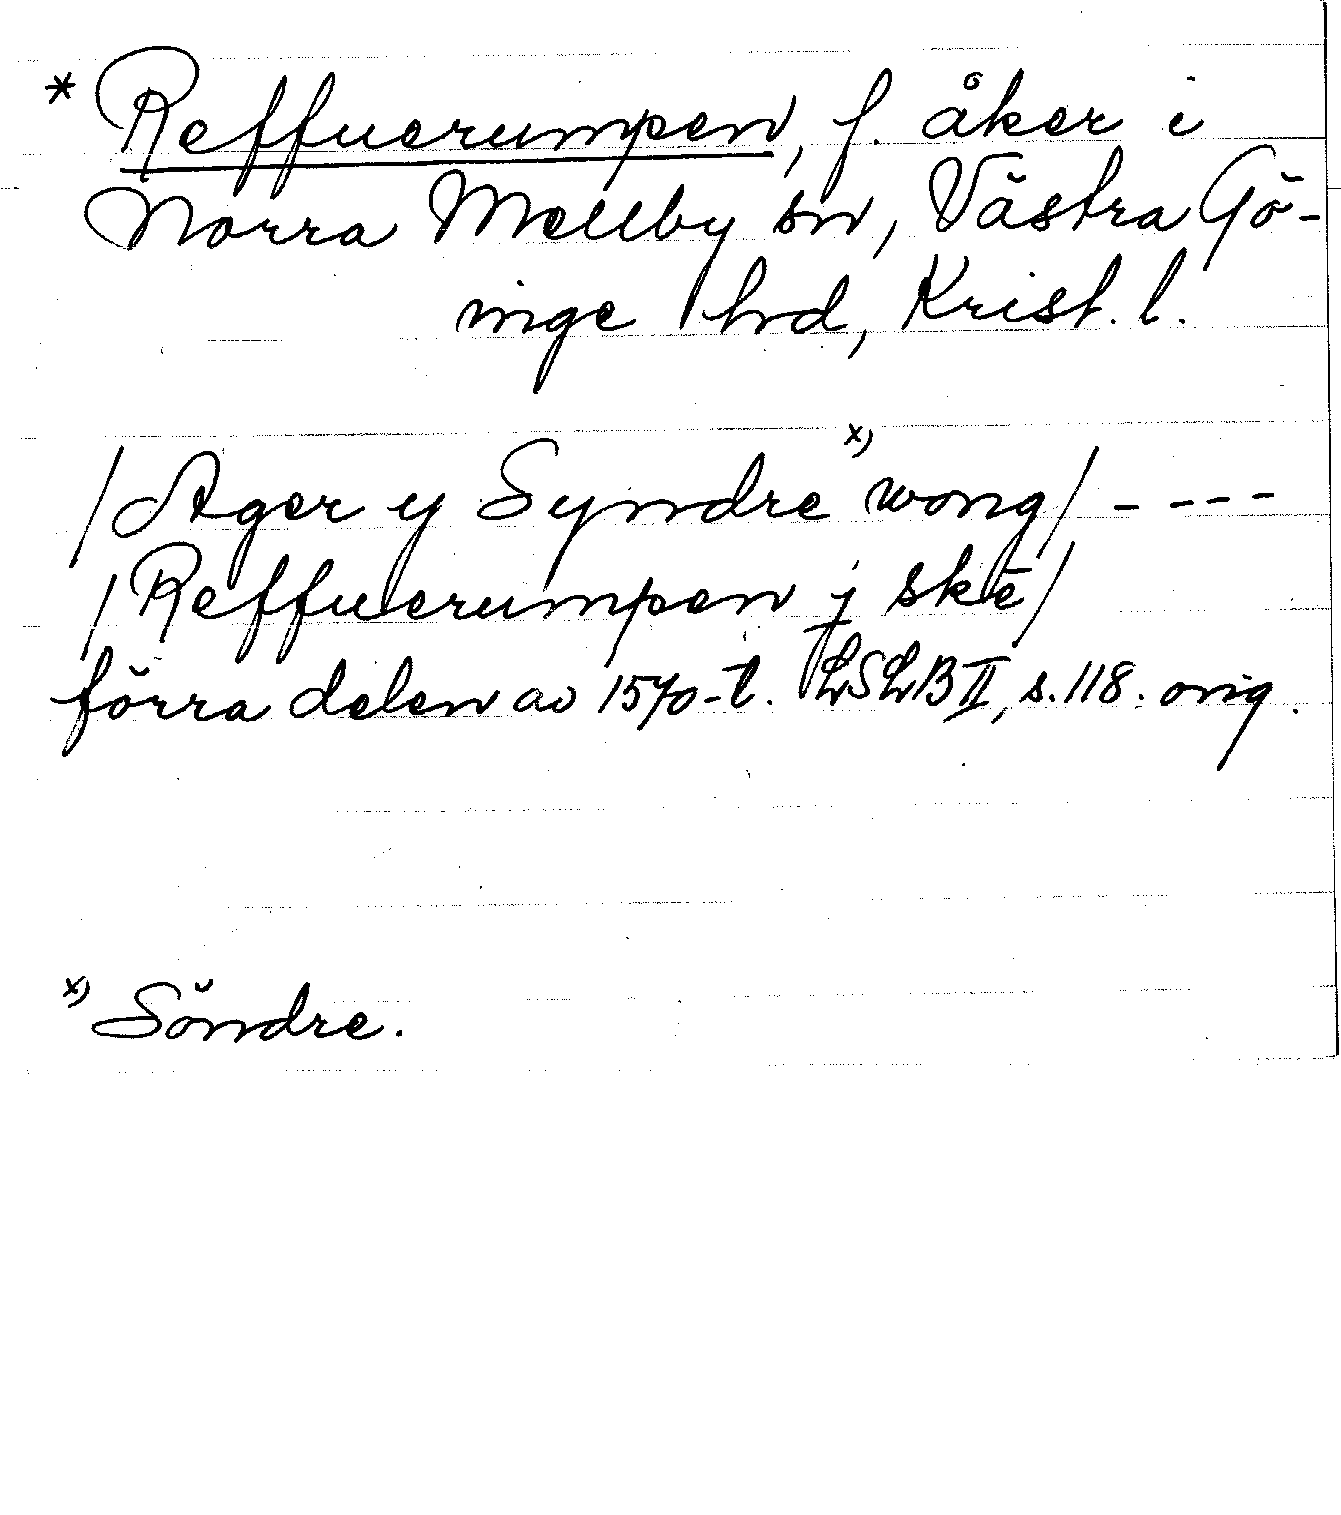 * Reffuerumpen, f. åker i
Norra Mellby sn, Västra Gö-
inge hd, Krist. l.
/Ager y Syndre x) wong/ - - - -
/Reffuerumpen j skē/
förra delen av 1570-t. LSLB II, s. 118. orig.
x) Söndre.